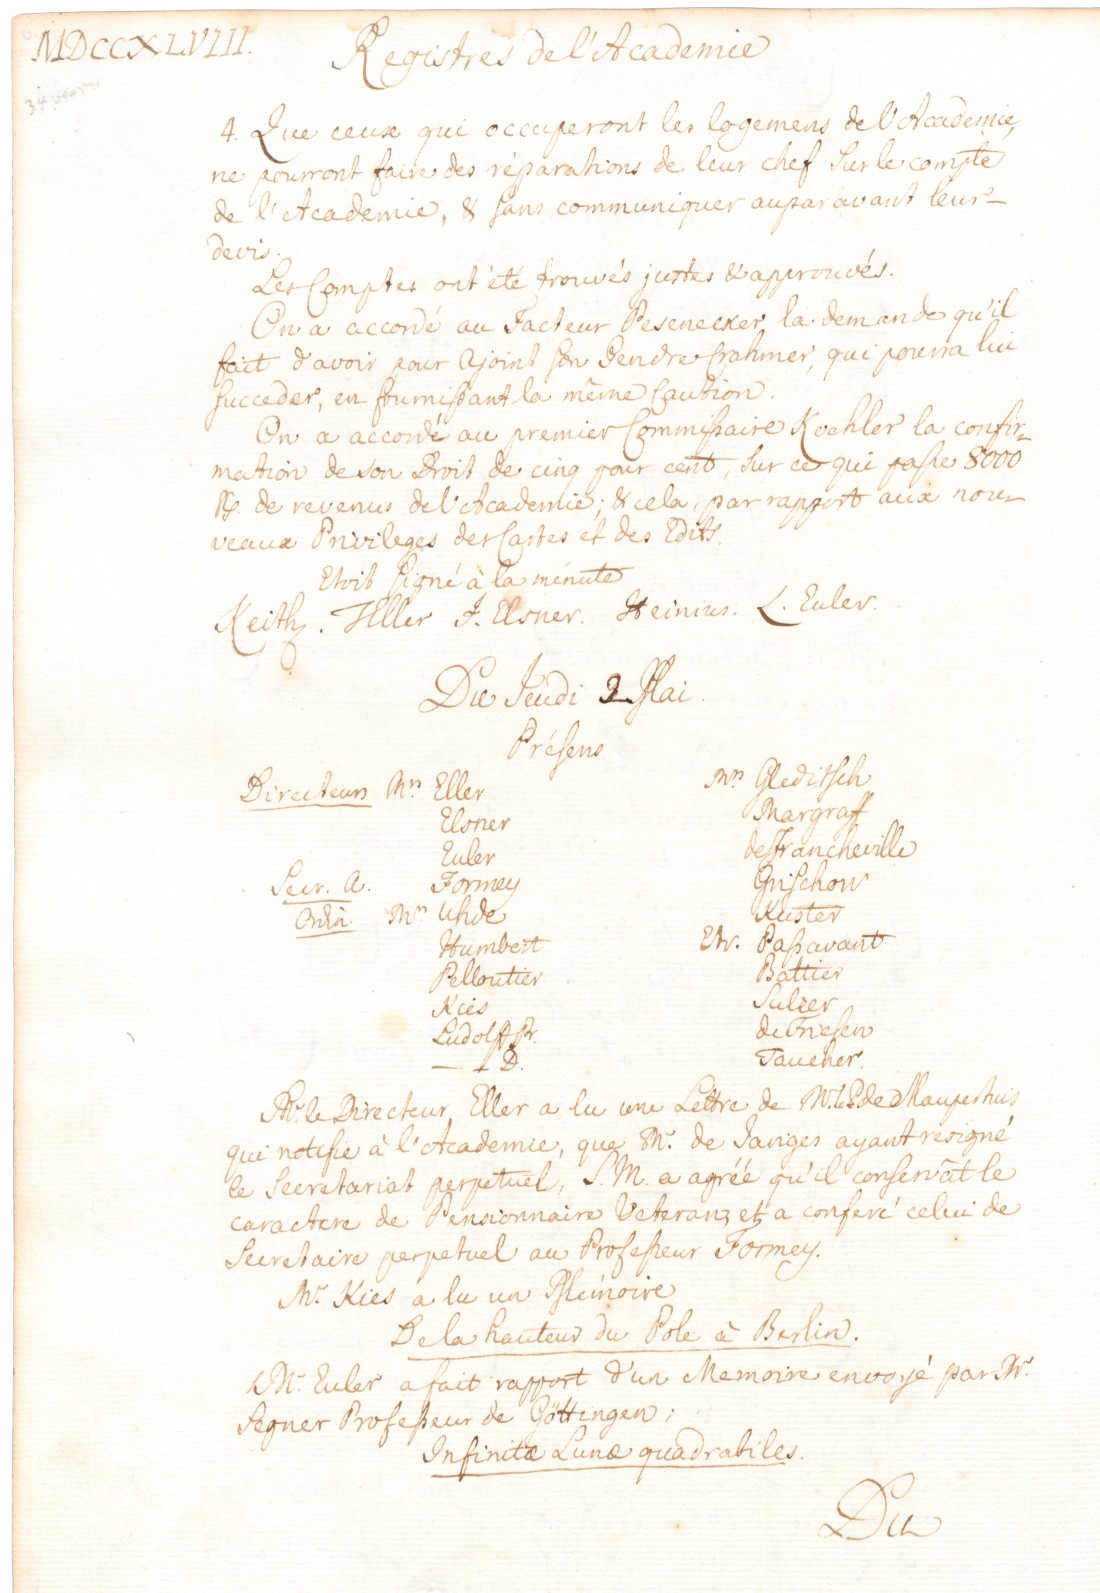 MDCCXLVIII.
Registres de l'Academie
4. Que ceux qui occuperont les logemens de l'Academie,
ne pourront faire des réparations de leur chef sur le compte
de l'Academie, & sans communiquer auparavant leur
devis.
Les Comptes ont été trouvés justes & approuvés.
On a accordé au Facteur Pesenecker, la demande qu'il
fait d'avoir pour Ajoint son Gendre Crahmer, qui pourra lui
succeder, en fournissant la même Caution.
On a accordé au premier Commissaire Koehler la confir-
mation de son Droit de cinq pour cent, sur ce qui passe 8000
de revenus de l'Academie; & cela, par rapport aux nou-
veaux Privileges des Cartes et des Edits.
Etoit signé à la minute
Keith. Eller J. Elsner. Heinius. L. Euler.
Du Jeudi 2 Mai.
Présens
Directeurs Mrs Eller
Elsner
Euler
Secr. A. Formey
Ordin. Mrs Uhde
Humbert
Pelloutier
Kies
Ludolff Pr.
— — D.
Mrs Gleditsch
Margraff
de Francheville
Grischow
Kuster
Etr. Passavant
Battier
Sulzer
de Friesen
Taucher.
Mr. le Directeur Eller a lu une Lettre de Mr. le P. de Maupertuis
qui notifie à l'Academie, que Mr. de Jariges ayant resigné
le Secretariat perpetuel, S. M. a agréé qu'il conservât le
caractere de Pensionnaire Veteran; et a conferé celui de
Secretaire perpetuel au Professeur Formey.
Mr. Kies a lu un Mémoire
De la hauteur du Pole à Berlin.
Mr. Euler a fait rapport d'un Memoire envoyé par Mr.
Segner Professeur de Göttingen;
Infinitæ Lunæ quadrabiles.
Du